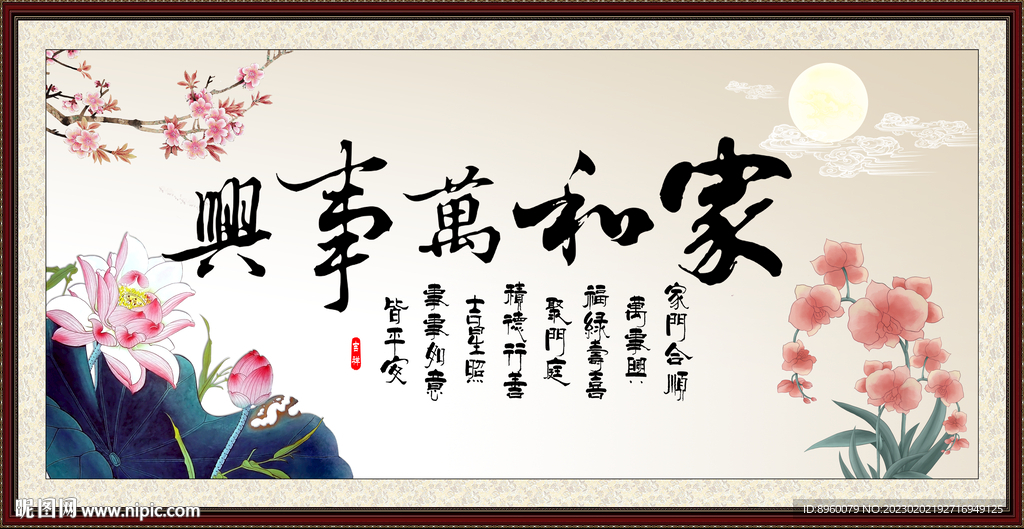 家和萬事興
家門合順
萬事興
福綠壽喜
聚門庭
積德行善
吉星照
事事如意
皆平安
吉祥
昵图网 www.nipic.com
ID:8960079 NO:20230202192716949125